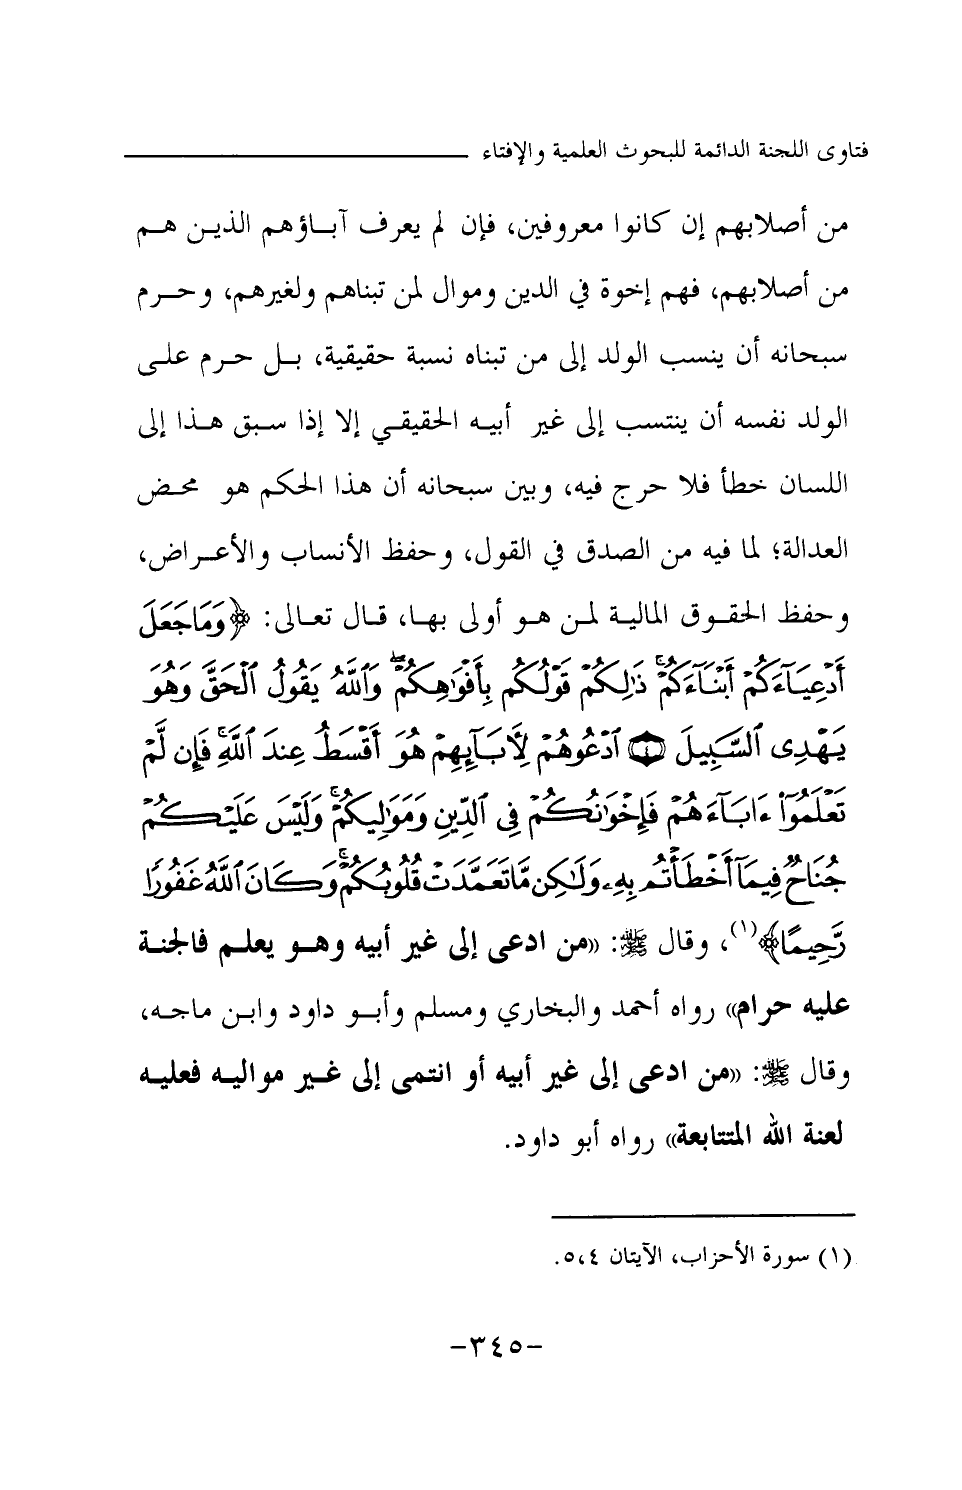 فتاوى اللجنة الدائمة للبحوث العلمية والإفتاء
من أصلابهم إن كانوا معروفين، فإن لم يعرف آباؤهم الذين هم
من أصلابهم، فهم إخوة في الدين وموال لمن تبناهم ولغيرهم، وحرم
سبحانه أن ينسب الولد إلى من تبناه نسبة حقيقية، بل حرم على
الولد نفسه أن ينتسب إلى غير أبيه الحقيقي إلا إذا سبق هذا إلى
اللسان خطأ فلا حرج فيه، وبين سبحانه أن هذا الحكم هو محض
العدالة؛ لما فيه من الصدق في القول، وحفظ الأنساب والأعراض،
وحفظ الحقوق المالية لمن هو أولى بها، قال تعالى: ﴿وَمَا جَعَلَ
أَدْعِيَآءَكُمْ أَبْنَآءَكُمْ ۚ ذَٰلِكُمْ قَوْلُكُم بِأَفْوَٰهِكُمْ ۖ وَٱللَّهُ يَقُولُ ٱلْحَقَّ وَهُوَ
يَهْدِى ٱلسَّبِيلَ ۝٤ ٱدْعُوهُمْ لِأَبَآئِهِمْ هُوَ أَقْسَطُ عِندَ ٱللَّهِ ۚ فَإِن لَّمْ
تَعْلَمُوٓا۟ ءَابَآءَهُمْ فَإِخْوَٰنُكُمْ فِى ٱلدِّينِ وَمَوَٰلِيكُمْ ۚ وَلَيْسَ عَلَيْكُمْ
جُنَاحٌ فِيمَآ أَخْطَأْتُم بِهِۦ وَلَٰكِن مَّا تَعَمَّدَتْ قُلُوبُكُمْ ۚ وَكَانَ ٱللَّهُ غَفُورًا
رَّحِيمًا﴾(١)، وقال ﷺ: «من ادعى إلى غير أبيه وهو يعلم فالجنة
عليه حرام» رواه أحمد والبخاري ومسلم وأبو داود وابن ماجه،
وقال ﷺ: «من ادعى إلى غير أبيه أو انتمى إلى غير مواليه فعليه
لعنة الله المتتابعة» رواه أبو داود.
(١) سورة الأحزاب، الآيتان ٤،٥.
-٣٤٥-